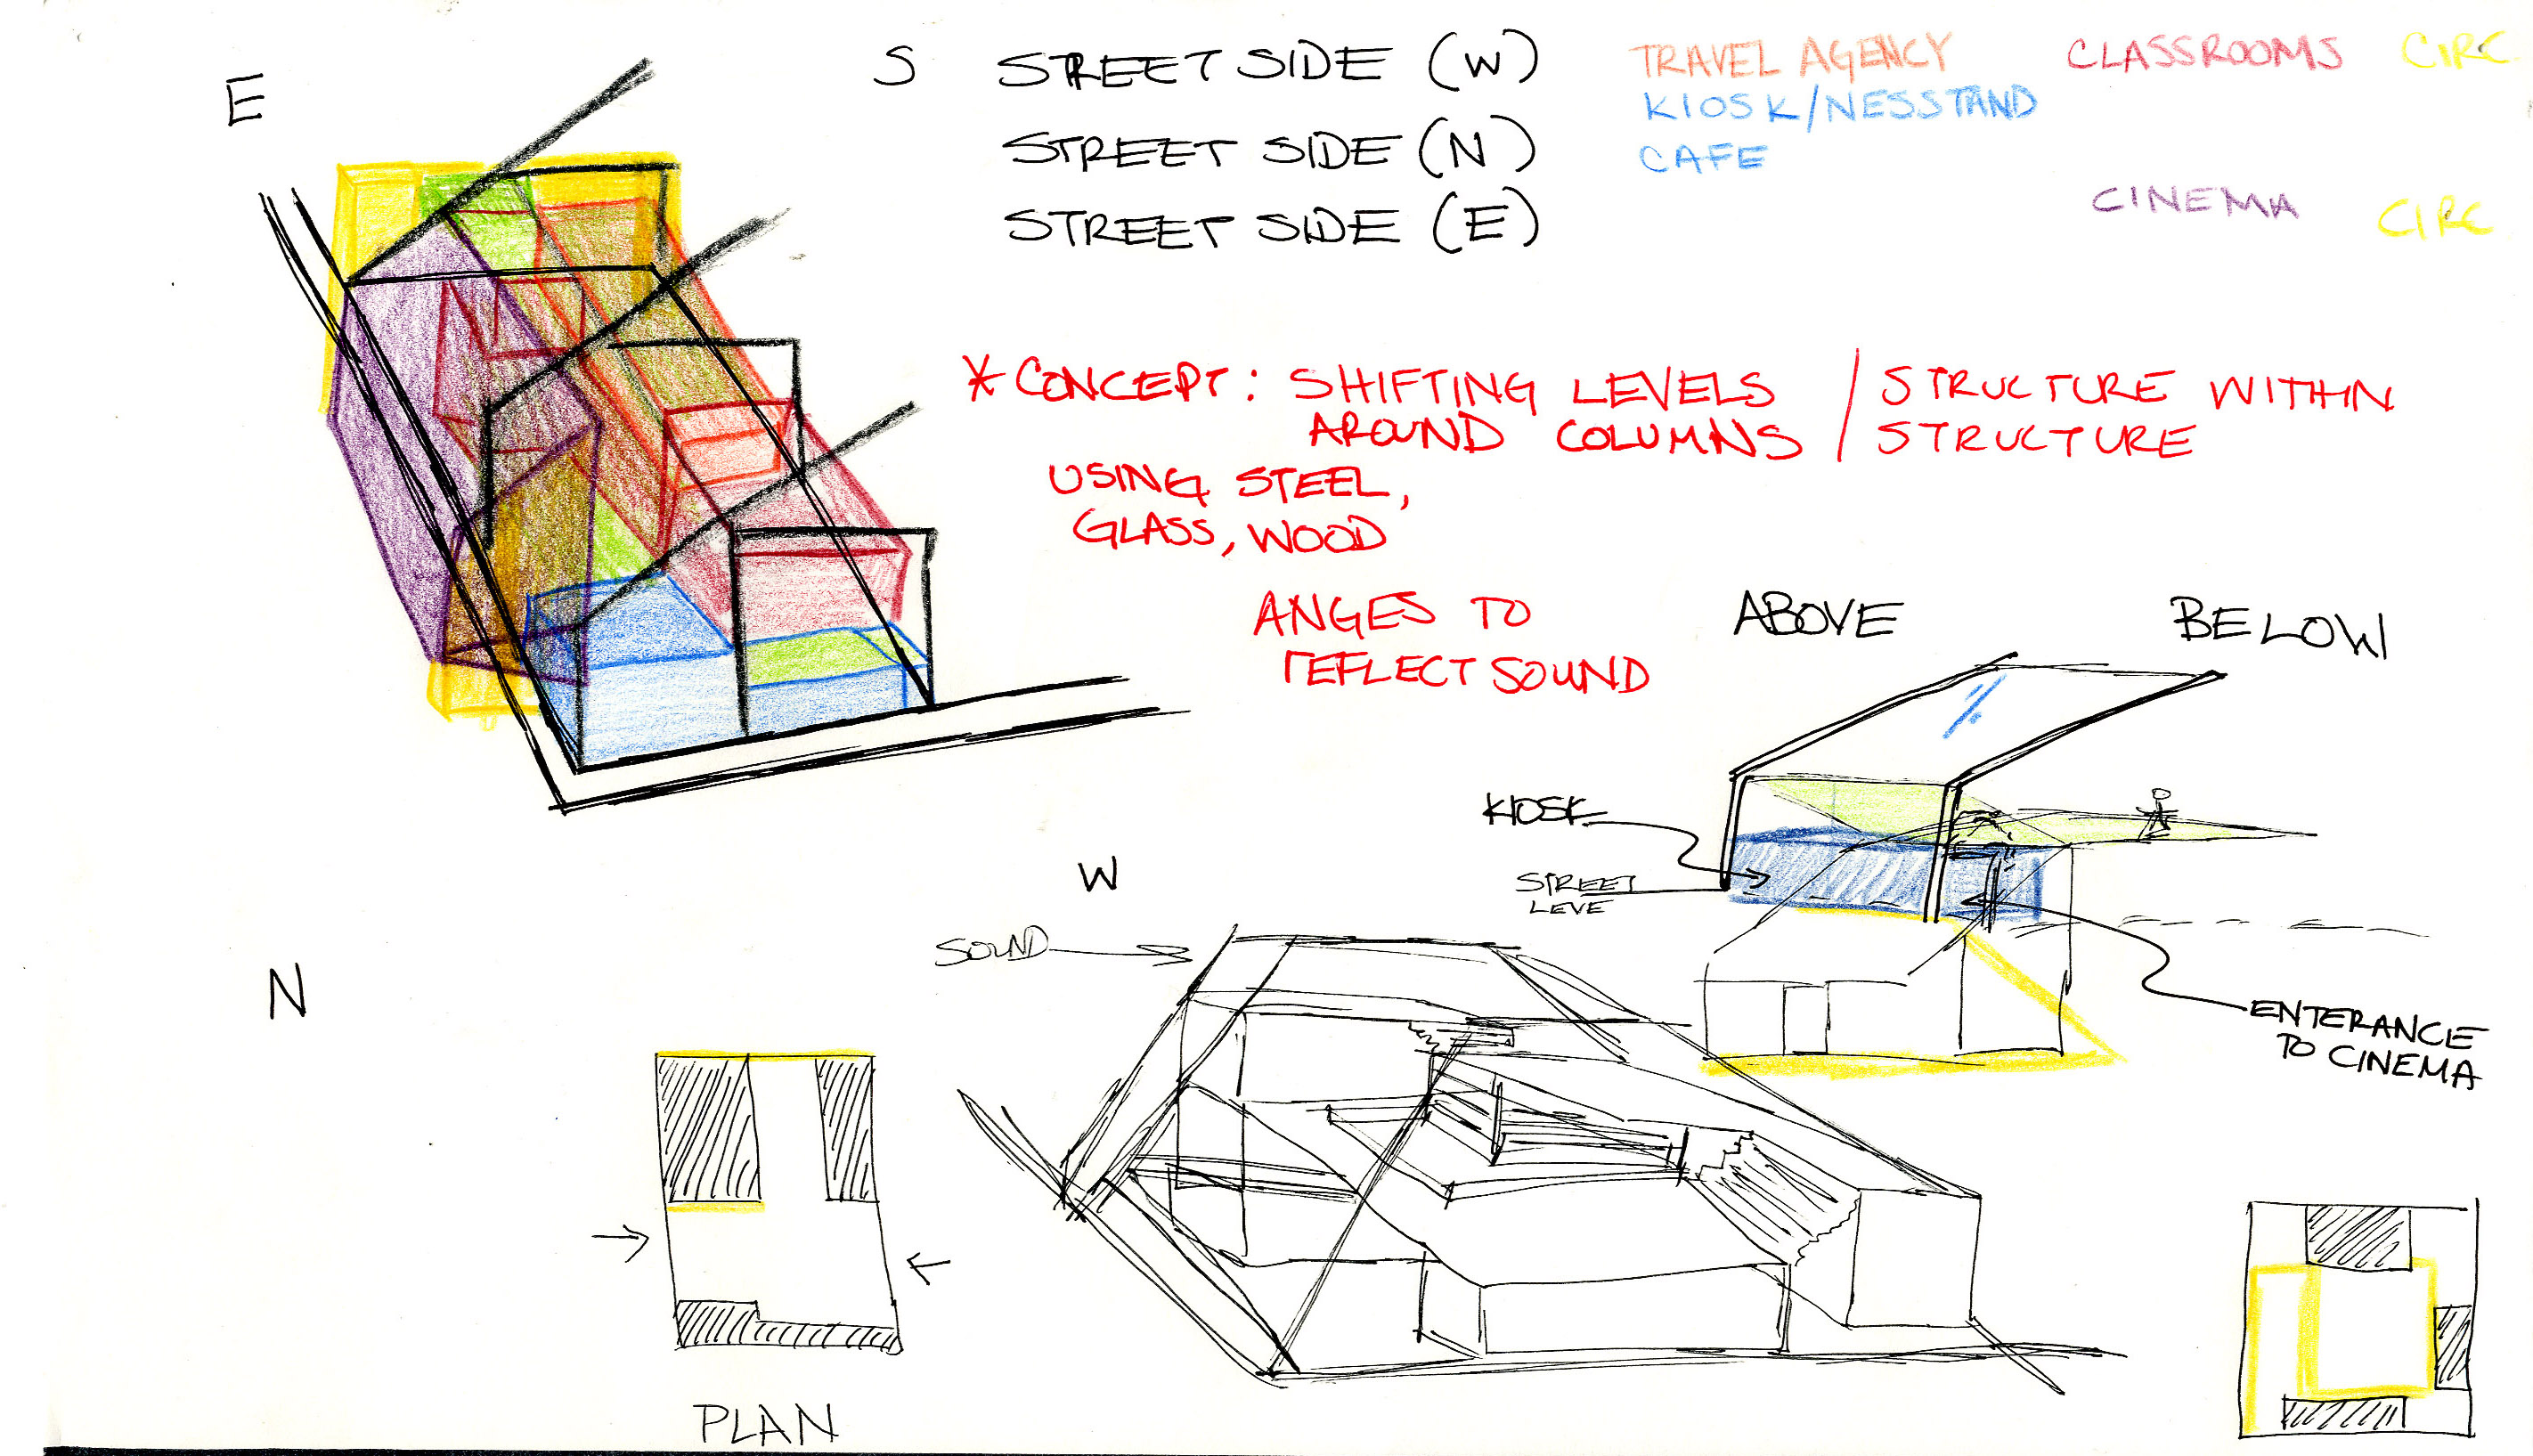 E
S STREET SIDE (W)
STREET SIDE (N)
STREET SIDE (E)
TRAVEL AGENCY
KIOSK/NESSTAND
CAFE
CLASSROOMS
CIRC
CINEMA
CIRC
* CONCEPT: SHIFTING LEVELS / STRUCTURE WITHIN
AROUND COLUMNS / STRUCTURE
USING STEEL,
GLASS, WOOD
ANGES TO
REFLECT SOUND
ABOVE
BELOW
KIOSK
STREET
LEVE
W
SOUND
N
ENTERANCE
TO CINEMA
PLAN